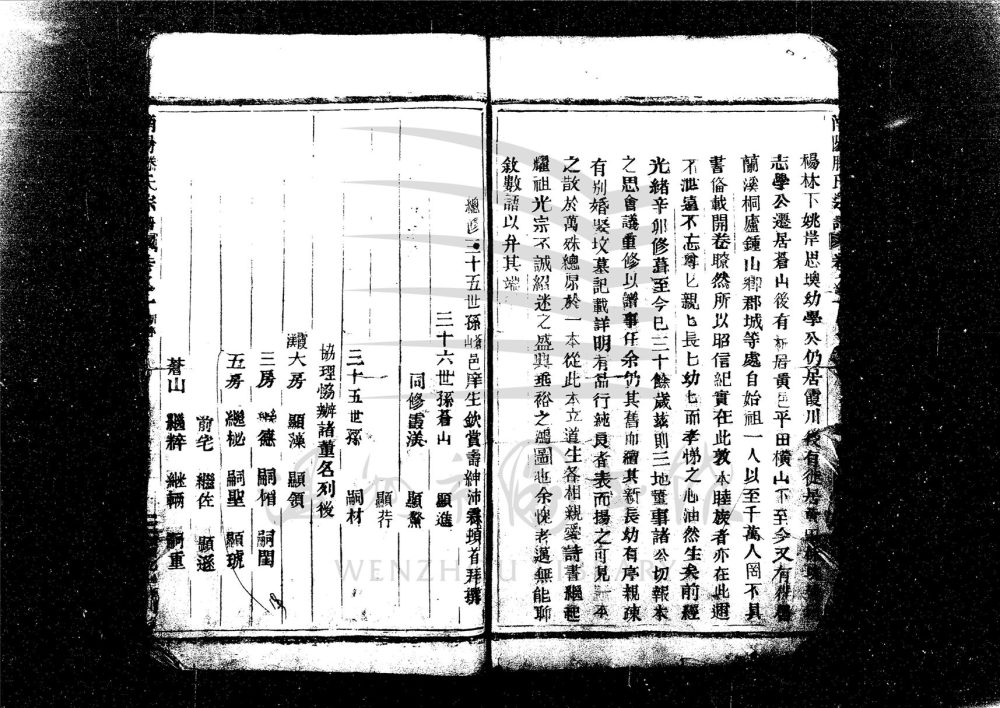 楊林下姚岸思墺幼學公仍居霞川後有徙居黃田
志學公遷居蒼山後有析居黃邑平田橫山下至今又有
蘭溪桐廬鍾山鄉郡城等處自始祖一人以至千萬人罔不具
書偹載開卷瞭然所以昭信紀實在此敦本睦族者亦在此邇
不泄遠不忘尊尊親親長長幼幼而孝悌之心油然生矣前經
光緒辛卯修葺至今已三十餘歲茲則三地董事諸公切報本
之思會議重修以譜事任余仍其舊而續其新長幼有序親疎
有別婚娶坟墓記載詳明有品行純良者表而揚之可見一本
之散於萬殊總原於一本從此本立道生各相親愛詩書繼起
耀祖光宗不誠紹述之盛典垂裕之鴻圖也余愧老邁無能聊
敘數語以弁其端
總修三十五世孫蒼山邑庠生欽賞壽紳沛霖頓首拜撰
三十六世孫蒼山 顯進
同修霞渼 顯鰲
顯荇
三十五世孫 嗣材
協理恊辦諸董名列後
霞渼大房 顯藻 顯領
三房 繼德 嗣楣 嗣閏
五房 繼柲 嗣聖 顯琥
前宅 繼佐 顯遜
蒼山 繼粹 継輛 嗣重
WENZHOU LIBRARY